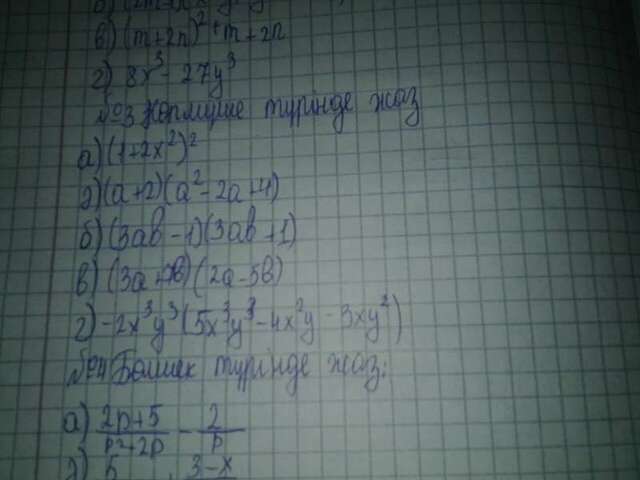 в) (m+2n)² + m + 2n
г) 8x³ - 27y³
№3 Көпмүше түрінде жаз
а) (1+2x²)²
ә) (a+2)(a²-2a+4)
б) (3ab-1)(3ab+1)
в) (2a-5b)
г) -2x³y³(5x³y³-4x²y-3xy²)
№4 Бөлшек түрінде жаз:
а) 2p+5/p²+2p - 2/p
ә) 5 3-x